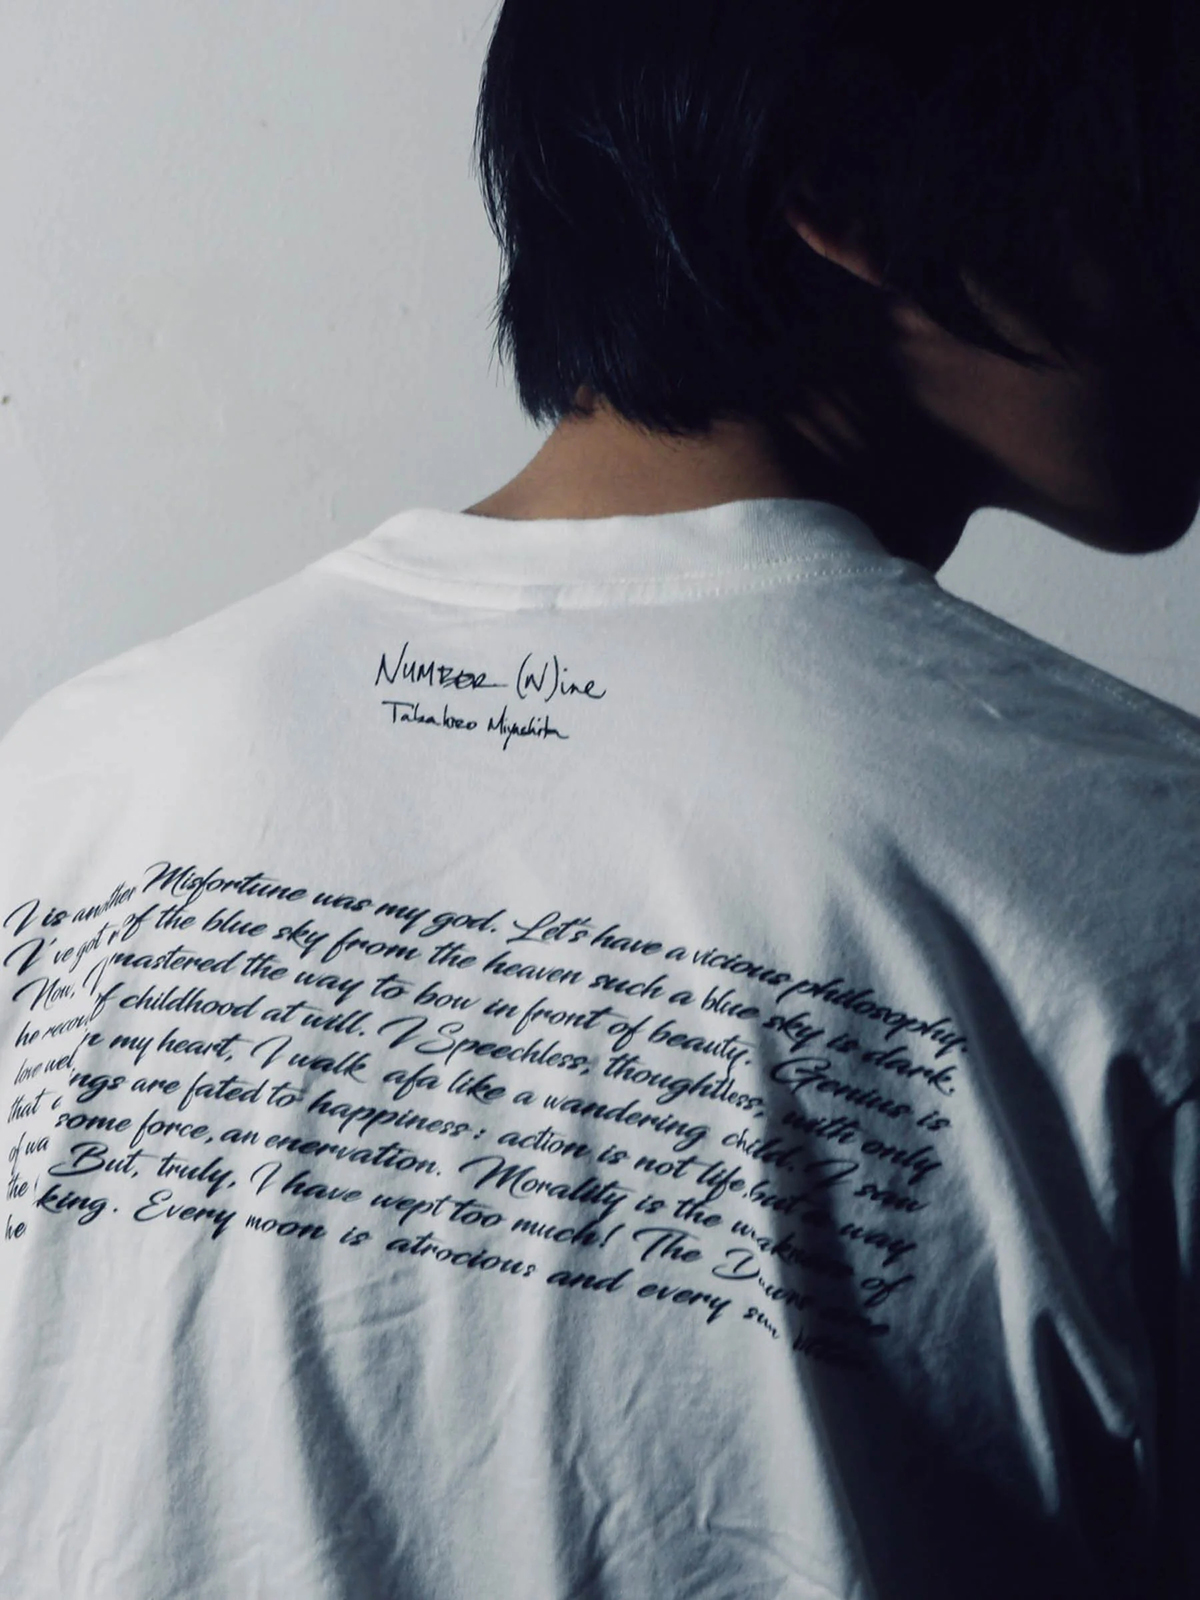 NUMBER (N)ine
Takahiro Miyashita
I is another Misfortune was my god. Let's have a vicious philosophy.
I've got of the blue sky from the heaven such a blue sky is dark.
Now, I mastered the way to bow in front of beauty. Genius is
he f childhood at will. I Speechless, thoughtless, with only
love my heart, I walk afa like a wandering child. I saw
that ngs are fated to happiness: action is not life, but a way
of wa some force, an enervation. Morality is the of
the But, truly, I have wept too much! The
he king. Every moon is atrocious and every sun